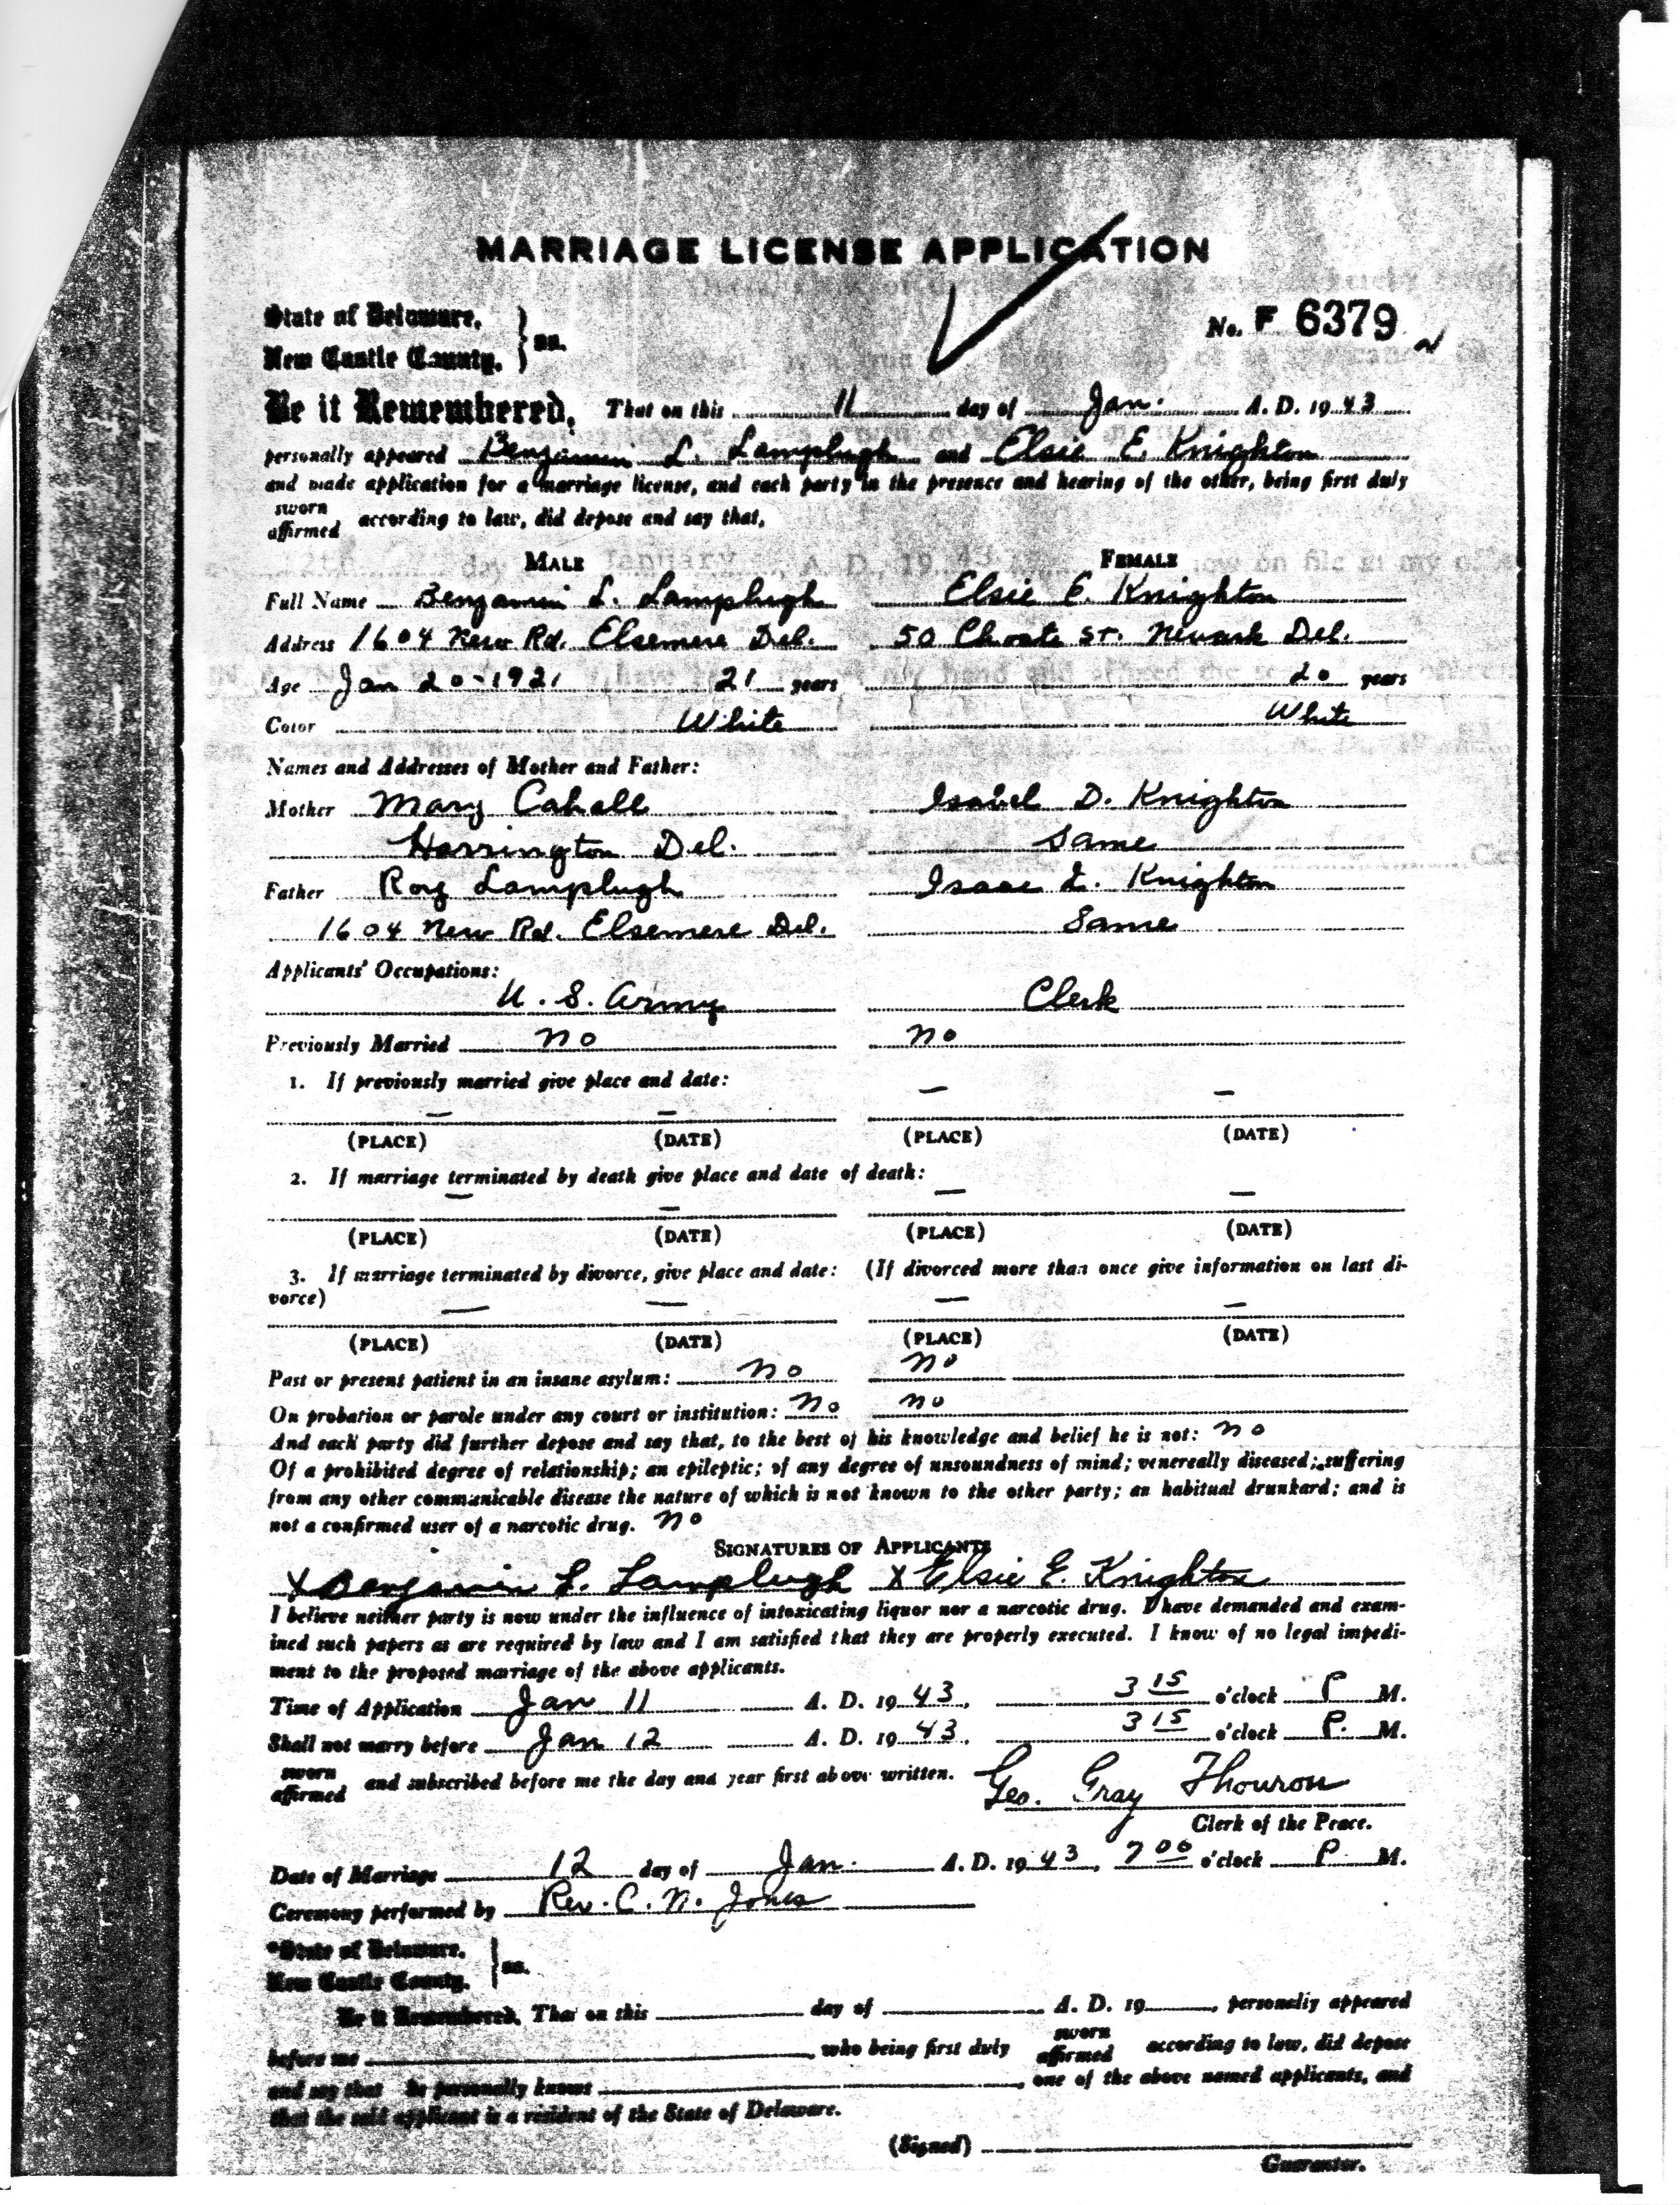 MARRIAGE LICENSE APPLICATION
State of Delaware,
New Castle County. } ss.
No. F 6379
Be it Remembered, That on this 11 day of Jan. A. D. 19 43
personally appeared Benjamin L. Lamplugh and Elsie E. Knighton
and made application for a marriage license, and each party in the presence and hearing of the other, being first duly
sworn
affirmed according to law, did depose and say that,
MALE FEMALE
Full Name Benjamin L. Lamplugh Elsie E. Knighton
Address 1604 New Rd. Elsemere Del. 50 Choate St. Newark Del.
Age Jan 20-1921 21 years 20 years
Color White White
Names and Addresses of Mother and Father:
Mother Mary Cahall Isabel D. Knighton
Harrington Del. Same
Father Roy Lamplugh Isaac L. Knighton
1604 New Rd. Elsemere Del. Same
Applicants' Occupations:
U. S. Army Clerk
Previously Married no no
1. If previously married give place and date: — —
— —
(PLACE) (DATE) (PLACE) (DATE)
2. If marriage terminated by death give place and date of death:
— — — —
(PLACE) (DATE) (PLACE) (DATE)
3. If marriage terminated by divorce, give place and date: (If divorced more than once give information on last di-
vorce) — — — —
(PLACE) (DATE) (PLACE) (DATE)
Past or present patient in an insane asylum: no no
On probation or parole under any court or institution: no no
And each party did further depose and say that, to the best of his knowledge and belief he is not: no
Of a prohibited degree of relationship; an epileptic; of any degree of unsoundness of mind; venereally diseased; suffering
from any other communicable disease the nature of which is not known to the other party; an habitual drunkard; and is
not a confirmed user of a narcotic drug. no
SIGNATURES OF APPLICANTS
X Benjamin L. Lamplugh X Elsie E. Knighton
I believe neither party is now under the influence of intoxicating liquor nor a narcotic drug. I have demanded and exam-
ined such papers as are required by law and I am satisfied that they are properly executed. I know of no legal impedi-
ment to the proposed marriage of the above applicants.
Time of Application Jan 11 A. D. 19 43, 3 15 o'clock P. M.
Shall not marry before Jan 12 A. D. 19 43, 3 15 o'clock P. M.
sworn
affirmed and subscribed before me the day and year first above written. Geo. Gray Thouron
Clerk of the Peace.
Date of Marriage 12 day of Jan. A. D. 19 43, 7 00 o'clock P. M.
Ceremony performed by Rev. C. N. Jones
*State of Delaware,
New Castle County. } ss.
Be it Remembered, That on this day of A. D. 19 , personally appeared
before me , who being first duly sworn affirmed according to law, did depose
and say that he personally knows , one of the above named applicants, and
that the said applicant is a resident of the State of Delaware.
(Signed)
Guarantor.